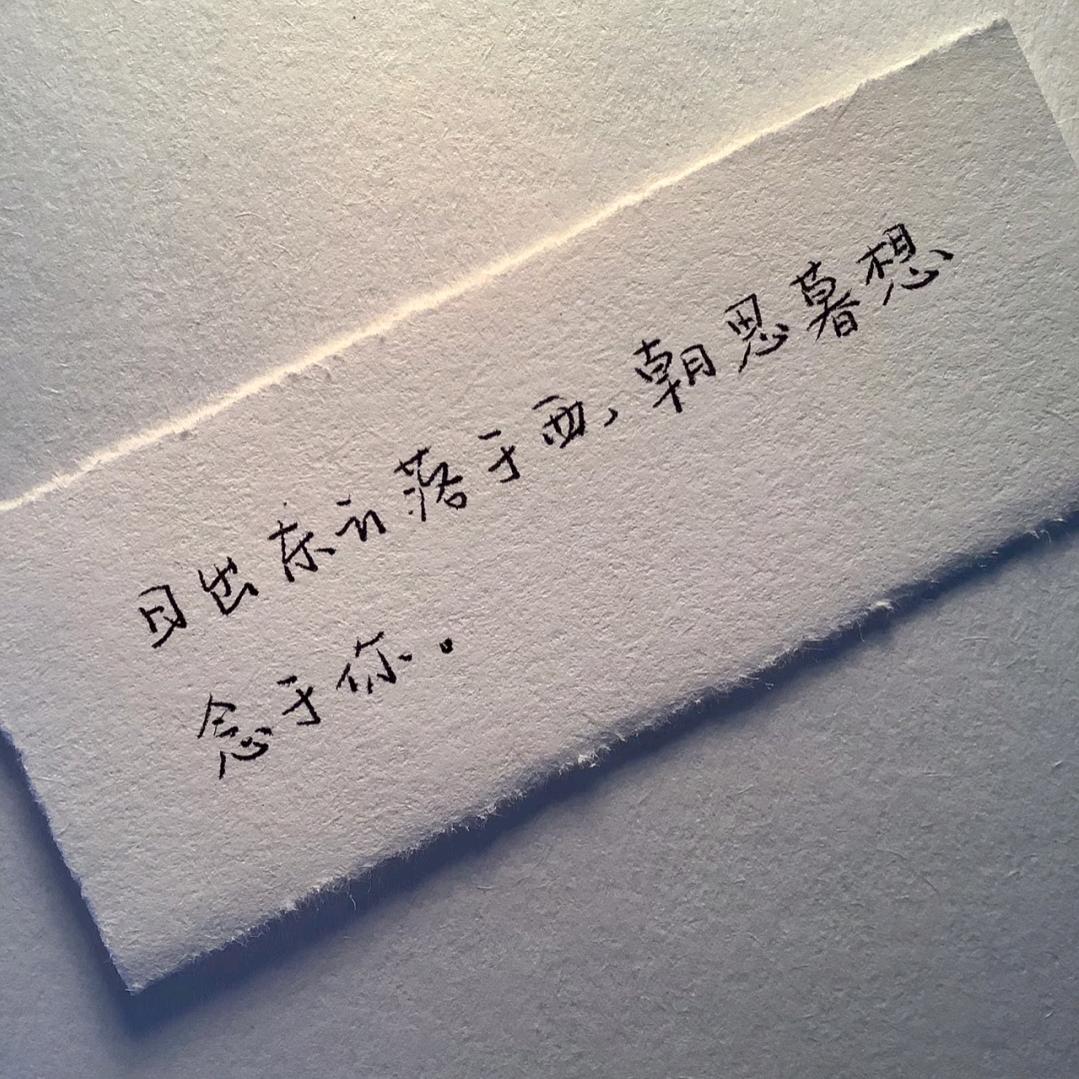 日出东而落于西,朝思暮想
念于你。